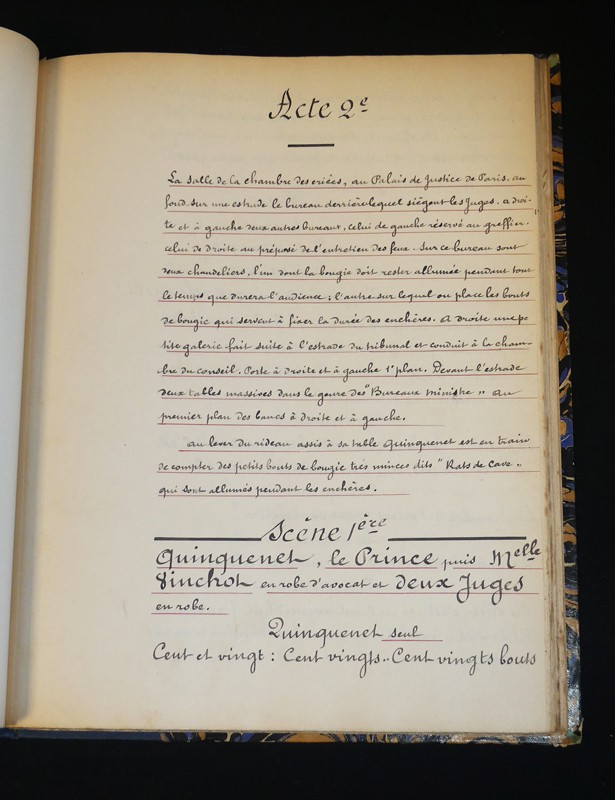 Acte 2e
La salle de la chambre des criées, au Palais de Justice de Paris. au
fond sur une estrade le bureau derrière lequel siégent les Juges. a droi-
te et à gauche deux autres bureaux, celui de gauche réservé au greffier.
celui de droite au préposé de l'entretien des feux. Sur ce bureau sont
deux chandeliers, l'un dont la bougie doit rester allumée pendant tout
le temps que durera l'audience ; l'autre sur lequel on place les bouts
de bougie qui servent à fixer la durée des enchères. A droite une pe
tite galerie fait suite à l'estrade du tribunal et conduit à la cham-
bre du conseil. Porte à droite et à gauche 1er plan. Devant l'estrade
deux tables massives dans le genre des "Bureaux Ministre" au
premier plan des bancs à droite et à gauche.
au lever du rideau assis à sa table Quinquenet est en train
de compter des petits bouts de bougie très minces dits "Rats de Cave"
qui sont allumés pendant les enchères.
Scène 1ère
Quinquenet, le Prince puis Melle
Vinchot en robe d'avocat et deux Juges
en robe.
Quinquenet seul
Cent et vingt : Cent vingts.. Cent vingts bouts